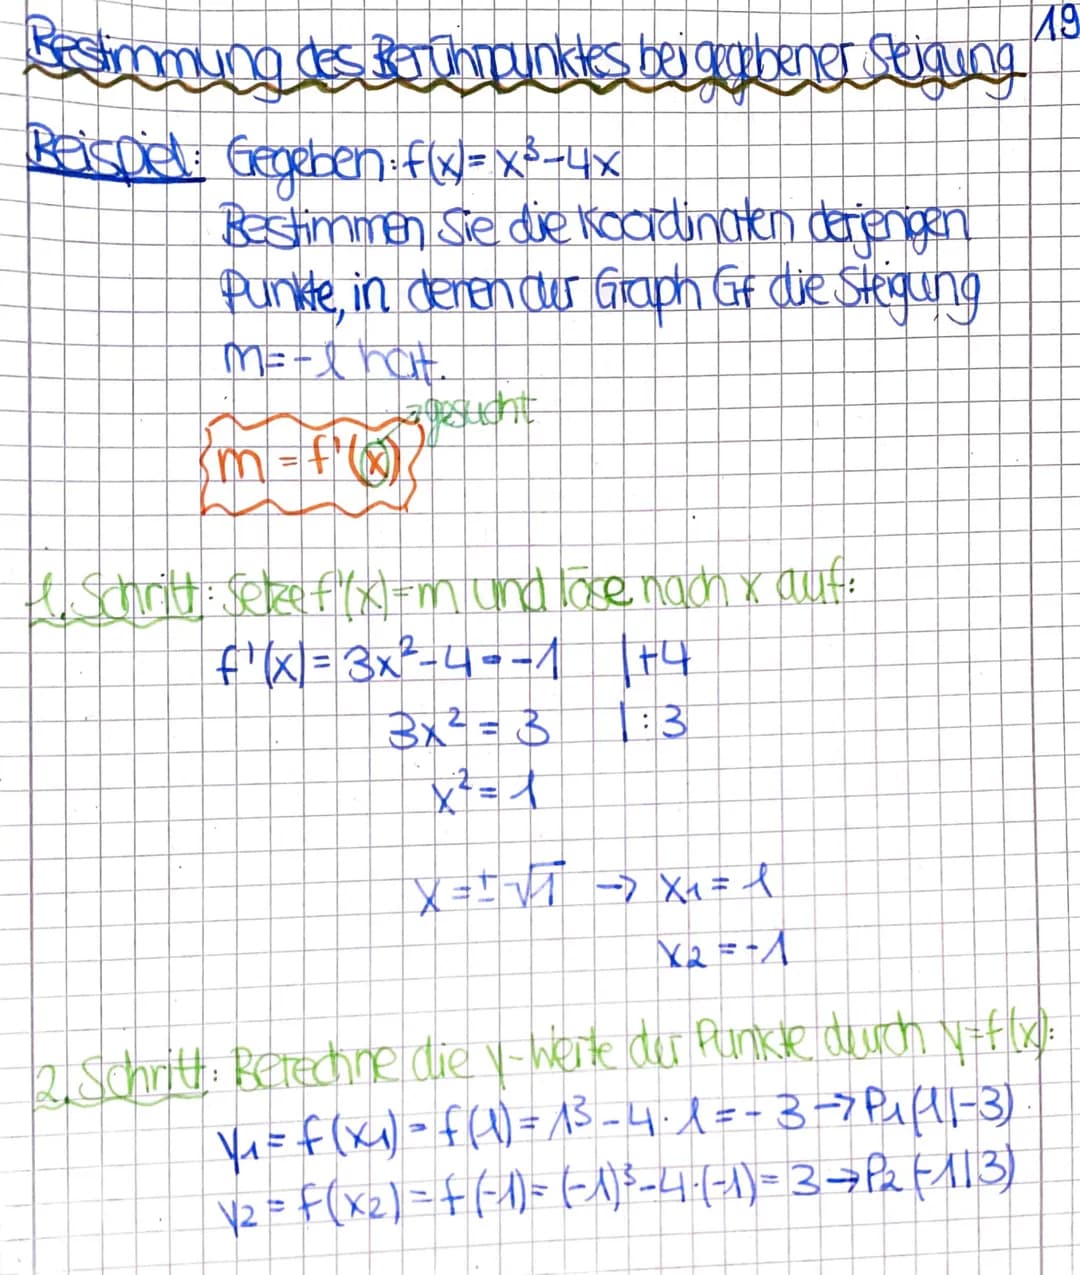 19
Bestimmung des Berührpunktes bei gegebener Steigung
Beispiel: Gegeben: f(x)= x³-4x
Bestimmen Sie die Koordinaten derjenigen
Punkte, in denen der Graph Gf die Steigung
m=-1 hat.
→gesucht
m = f'(x)
1. Schritt: Setze f'(x)=m und löse nach x auf:
f'(x)= 3x²-4=-1 |+4
3x² = 3 |:3
x² = 1
x = ±√1 → x1 = 1
x2 = -1
2. Schritt: Berechne die y-Werte der Punkte durch y=f(x):
y1 = f(x1) = f(1) = 1³-4·1 = -3 → P1(1|-3)
y2 = f(x2) = f(-1) = (-1)³-4·(-1) = 3 → P2(-1|3)